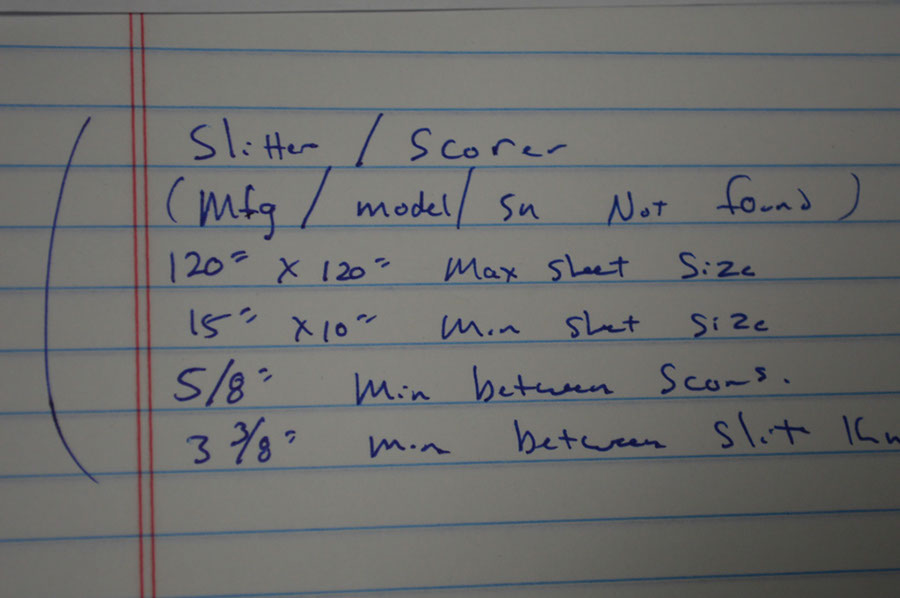 Slitter / Scorer
(Mfg / model / sn Not found)
120" x 120" Max sheet Size
15" x 10" Min sheet size
5/8" Min between Scores.
3 3/8" min between Slit Kn